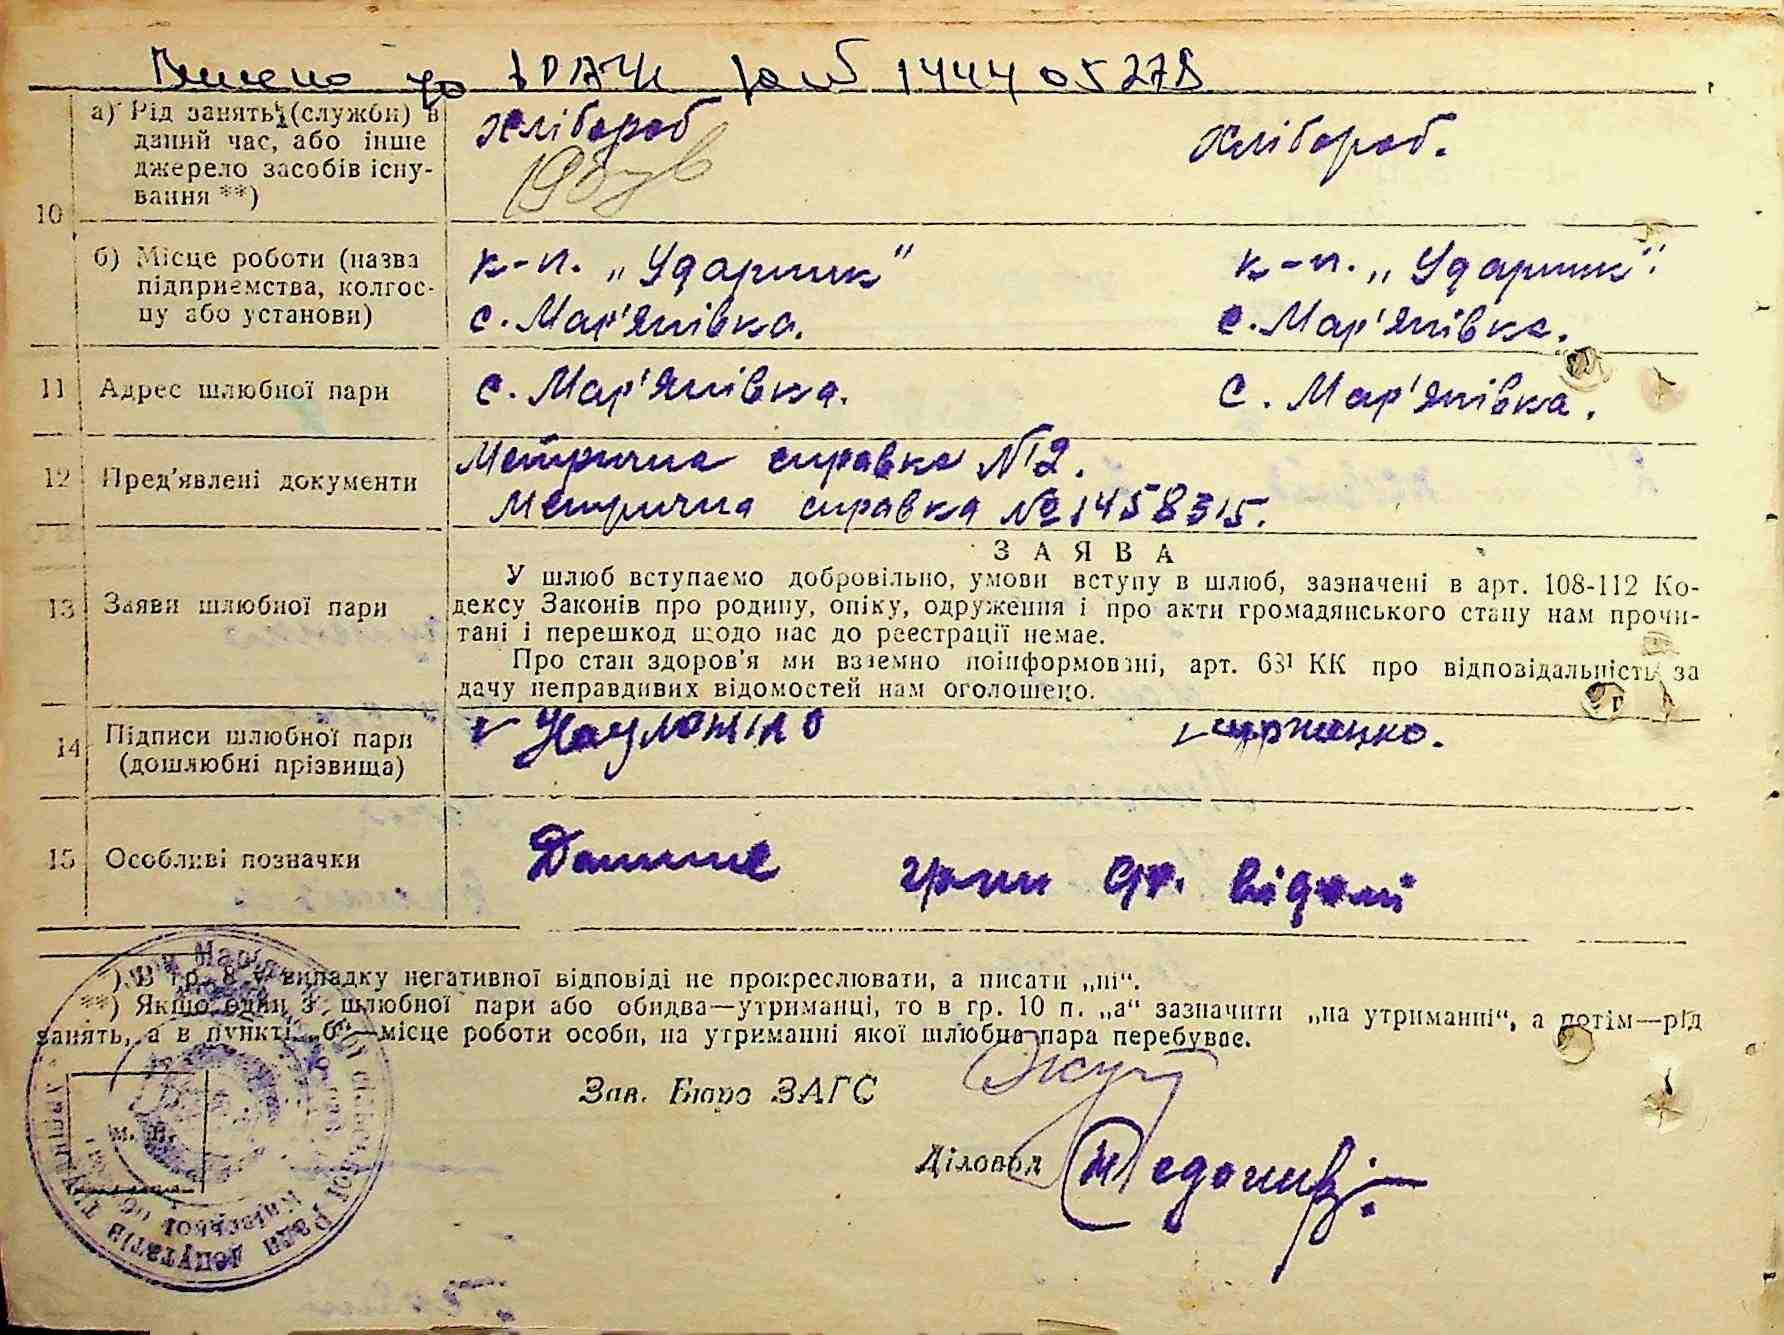 Внесено до ДРАЦС за № 14440527
10
а) Рід занять (служби) в
даний час, або інше
джерело засобів існу-
вання **)
Хлібороб
Хлібороб.
б) Місце роботи (назва
підприємства, колгос-
пу або установи)
к-п. „Ударник"
с. Мар'янівка.
к-п. „Ударник".
с. Мар'янівка.
11 Адрес шлюбної пари
с. Мар'янівка.
с. Мар'янівка.
12 Пред'явлені документи
Метрична справка №12.
Метрична справка № 1458315.
13 Заяви шлюбної пари
ЗАЯВА
У шлюб вступаємо добровільно, умови вступу в шлюб, зазначені в арт. 108-112 Ко-
дексу Законів про родину, опіку, одруження і про акти громадянського стану нам прочи-
тані і перешкод щодо нас до реєстрації немає.
Про стан здоров'я ми взаємно поінформовані, арт. 63¹ КК про відповідальність за
дачу неправдивих відомостей нам оголошено.
14 Підписи шлюбної пари
(дошлюбні прізвища)
15 Особливі позначки
відомі
*) В гр. 8 у випадку негативної відповіді не прокреслювати, а писати „ні".
**) Якщо один з шлюбної пари або обидва—утриманці, то в гр. 10 п. „а" зазначити „на утриманні", а потім—рід
занять, а в пункті „б"—місце роботи особи, на утриманні якої шлюбна пара перебуває.
Зав. Бюро ЗАГС
Діловод
м. п.
Київської
Ради депутатів